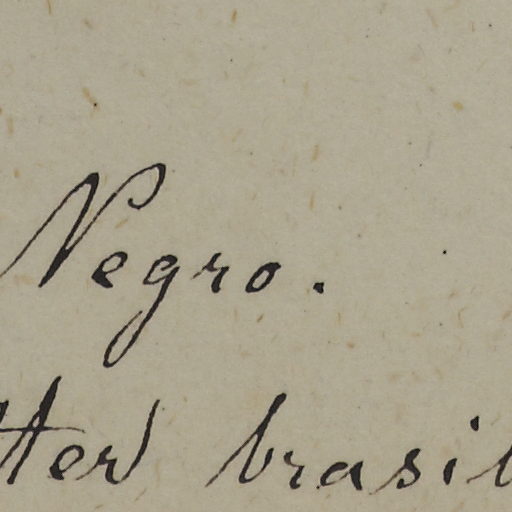 Negro.
tter brasil